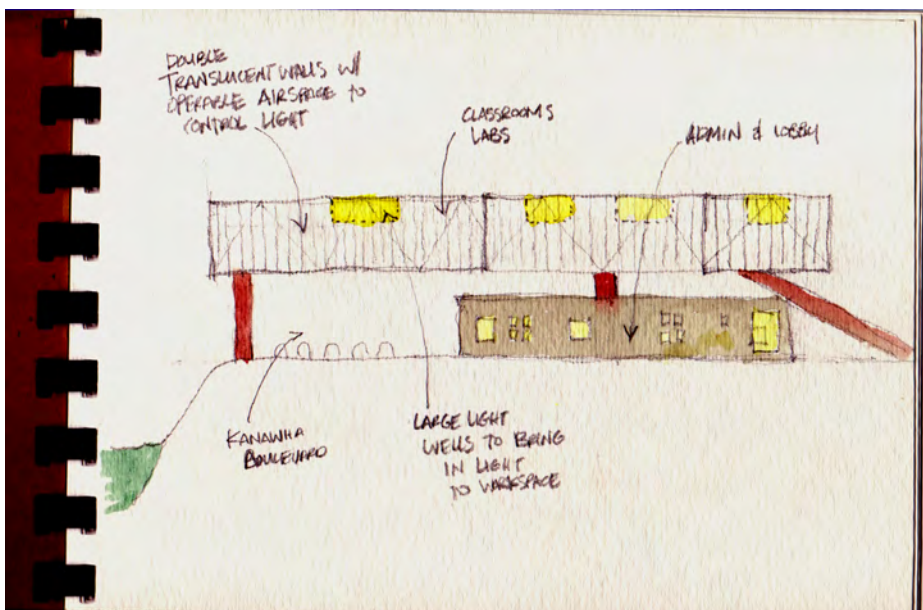 DOUBLE
TRANSLUCENT WALLS W/
OPERABLE AIRSPACE TO
CONTROL LIGHT
CLASSROOMS
LABS
ADMIN & LOBBY
KANAWHA
BOULEVARD
LARGE LIGHT
WELLS TO BRING
IN LIGHT
TO WORKSPACE